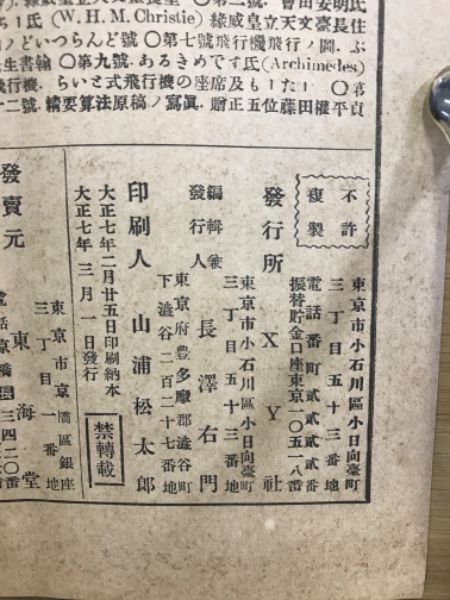 ち1氏 (W. H. M. Christie) 綠威皇立天文臺長住
ノどいつらんど號 〇第七號飛行機飛行ノ圖. ぶ
生書翰 〇第九號. あるきめです氏(Archimedes)
飛行機. らいと式飛行機の座席及もーたー! 〇第
二號. 精要算法原稿ノ寫眞. 贈正五位藤田權平貞
不許
複製
東京市小石川區小日向臺町
三丁目五十三番地
電話番町貳貳貳貳番
振替貯金口座東京一〇五一八番
發行所 XY社
東京市小石川區小日向臺町
三丁目五十三番地
編輯兼
發行人 長澤右門
東京府豊多摩郡澁谷町
下澁谷二百二十七番地
印刷人 山浦松太郎
大正七年二月廿五日印刷納本
大正七年三月一日發行
禁轉載
東京市京橋區銀座
三丁目一番地
發賣元 東海堂